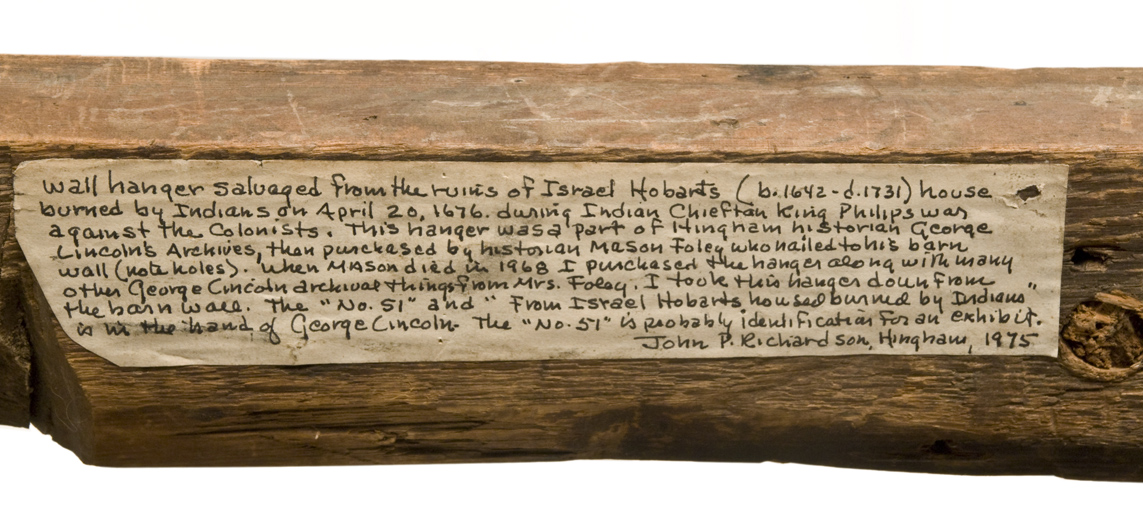 wall hanger salvaged from the ruins of Israel Hobarts (b.1642-d.1731) house
burned by Indians on April 20, 1676. during Indian Chieftan King Philips war
against the Colonists. This hanger was a part of Hingham historian George
Lincoln's Archives, then purchased by historian Mason Foley who nailed to his barn
wall (note holes). When MASon died in 1968 I purchased the hanger along with many
other George Lincoln archival things from Mrs. Foley. I took this hanger down from
the barn wall. The "No. 51" and " From Israel Hobarts housed burned by Indians"
is in the hand of George Lincoln- The "No. 51" is probably identification for an exhibit.
John P. Richardson, Hingham, 1975